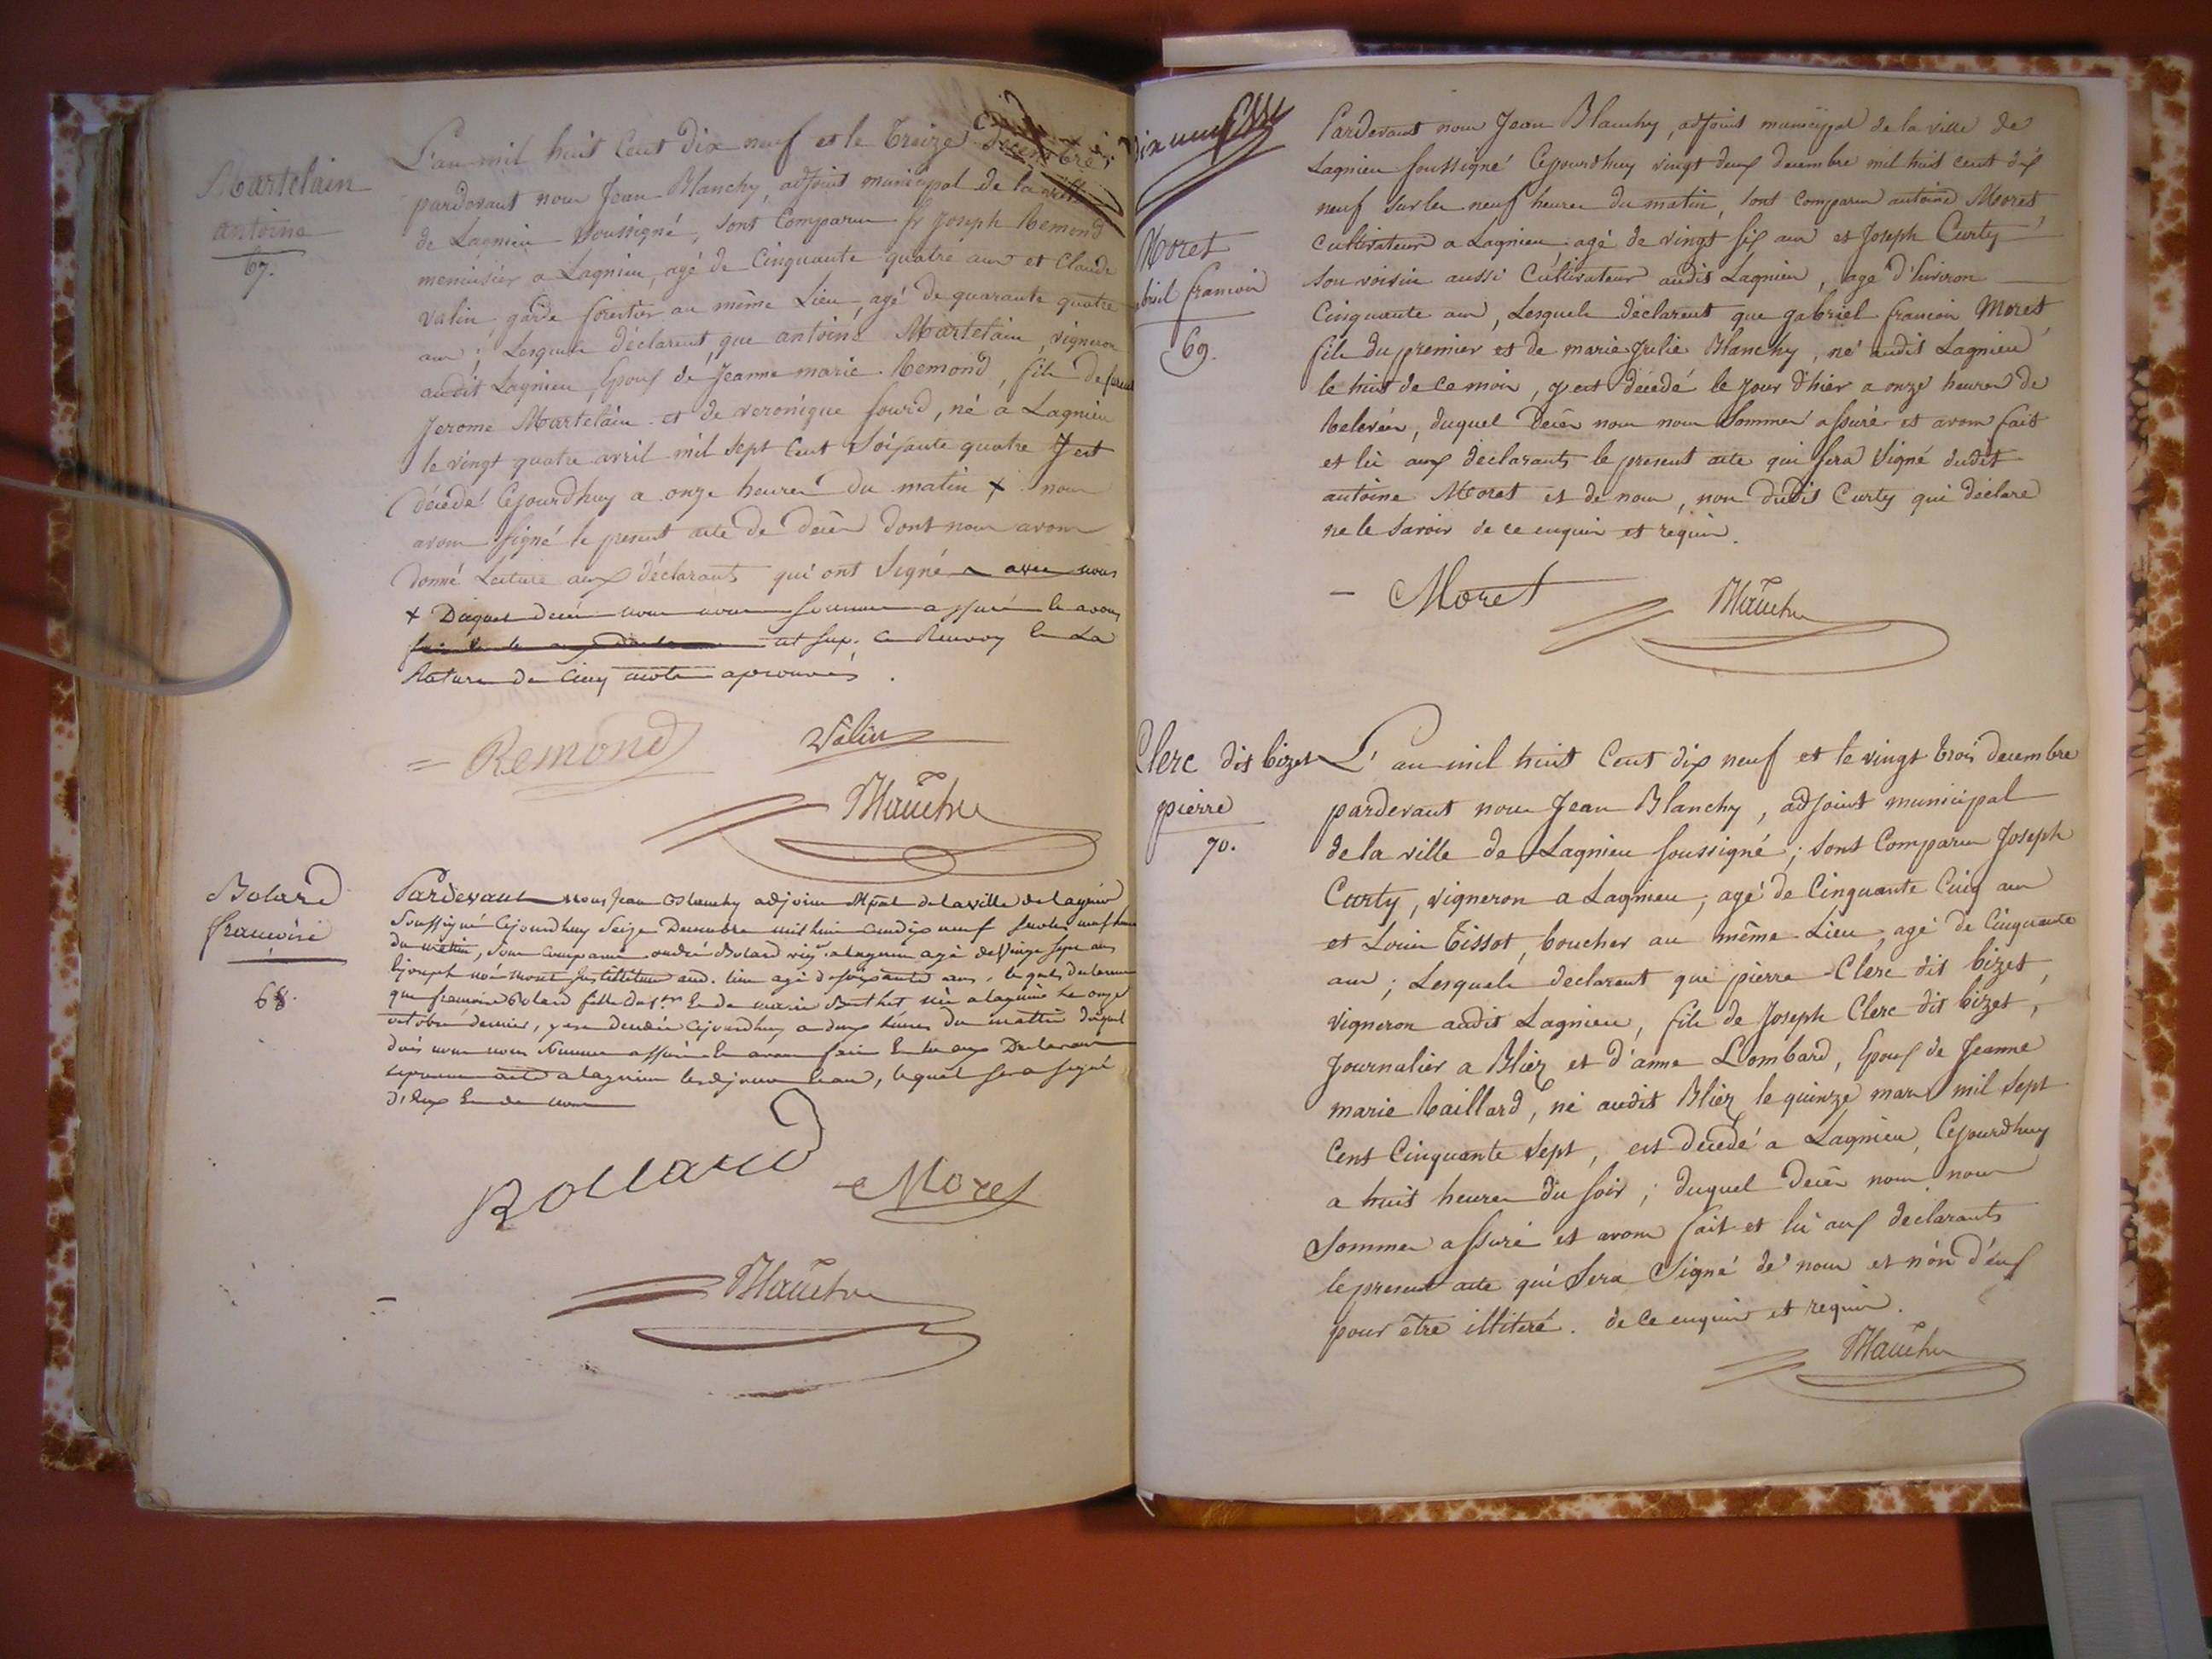 Martelain
antoine
67.
L'an mil huit Cent Dix neuf et le treize Decembre
pardevant nous Jean Blanchy, adjoint municipal de la ville
de Lagnieu Soussigné, sont Comparu Sr Joseph Remond
menuisier a Lagnieu, agé de Cinquante quatre ans et Claude
valin, garde forestier au même Lieu, agé de quarante quatre
ans; Lesquels déclarent, que antoine Martelain, vigneron
audit Lagnieu, Epoux de Jeanne marie Remond, fils de
Jerome Martelain et de veronique Sourd, né a Lagnieu
le vingt quatre avril mil sept Cent Soixante quatre y est
décédé Cejourdhuy a onze heures du matin + nous
avons Signé le present acte de Décès dont nous avons
donné Lecture aux déclarants qui ont Signé avec nous
+ Duquel decès nous nous sommes assuré
et sup. ce Renvoy et La
Rature de Cinq mots aprouvés.
Remond
Valin
Blanchy
Bolard
francoise
68.
Pardevant nous Jean Blanchy adjoint Mpal de la ville de Lagnieu
Soussigné Cejourdhuy Seize Decembre mil huit cent dix neuf sur les neuf heures
du matin, sont comparu andré Bolard vig.on a lagnieu agé de Vingt sept ans
Institituteur aud. lieu agé de soixante ans, lesquels declarent
que francoise Bolard fille du 1.er Et de marie Berthet née a lagnieu le onze
octobre dernier, y est decedée Cejourdhuy a deux heures du mattin duquel
decès nous nous sommes assuré et avons fait Et lu aux Declarants
le present acte a lagnieu lesdjours et an, lequel sera signé
d'eux Et de nous
Bollard
Moret
Blanchy
dix neuf
Moret
briel francois
69.
Pardevant nous Jean Blanchy, adjoint municippal de la ville de
Lagnieu soussigné Cejourdhuy vingt deux decembre mil huit cent dix
neuf sur les neuf heures du matin, sont comparu antoine Moret
cultivateur a Lagnieu, agé de vingt six ans et Joseph Curty
son voisin aussi Cultivateur audit Lagnieu, agé d'Environ
Cinquante ans, Lesquels déclarent que gabriel francois Moret
fils du premier et de marie Julie Blanchy, né audit Lagnieu
le huit de ce mois, y est décedé le jour d'hier a onze heures de
Relevée, duquel Decès nous nous Sommes assuré et avons fait
et lu aux declarants le present acte qui sera Signé dudit
antoine Moret et de nous, non dudit Curty qui déclare
ne le savoir de ce enquis et requis.
Moret
Blanchy
Clerc dit bizet
pierre
70.
L'an mil huit Cent dix neuf et le vingt trois decembre
pardevant nous Jean Blanchy, adjoint municipal
de la ville de Lagnieu soussigné; sont Comparu Joseph
Curty, vigneron a Lagnieu, agé de Cinquante Cinq ans
et Louis Tissot, boucher au même Lieu, agé de Cinquante
ans; Lesquels declarent que pierre Clerc dit bizet,
vigneron audit Lagnieu, fils de Joseph Clerc dit bizet,
Journalier a Bliez et d'anne Lombard, Epoux de Jeanne
marie Caillard, né audit Bliez le quinze mars mil sept
Cent Cinquante sept, est décedé a Lagnieu, Cejourdhuy
a huit heures du soir; duquel Decès nous nous
Sommes assuré et avons fait et lu aux declarants
le present acte qui sera Signé de nous et non d'eux
pour être illitéré. de ce enquis et requis.
Blanchy